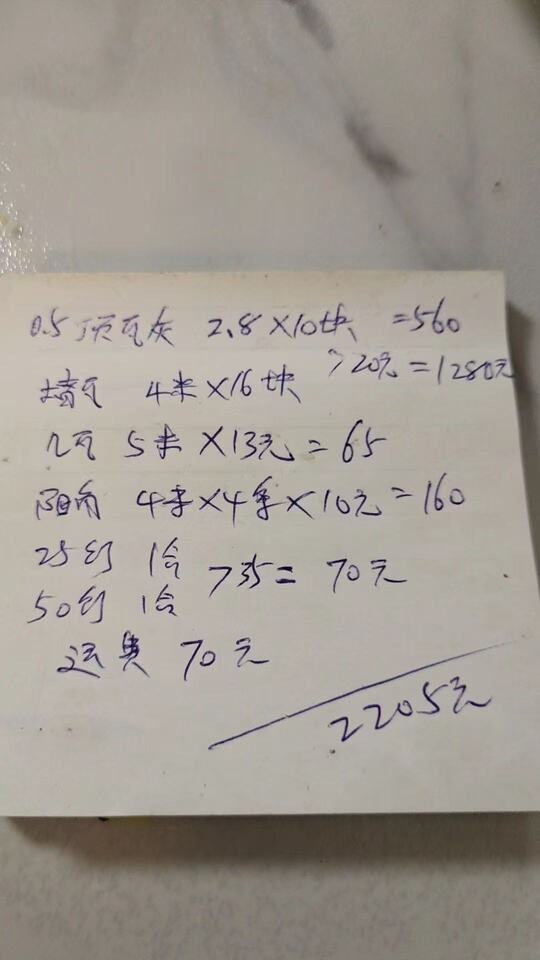 0.5顶瓦灰 2.8×10块 =560
墙瓦 4米×16块 >20元=1280元
几瓦 5米×13元=65
阳角 4米×4条×10元=160
25钉 1合
>35= 70元
50钉 1合
运费 70元
2205元